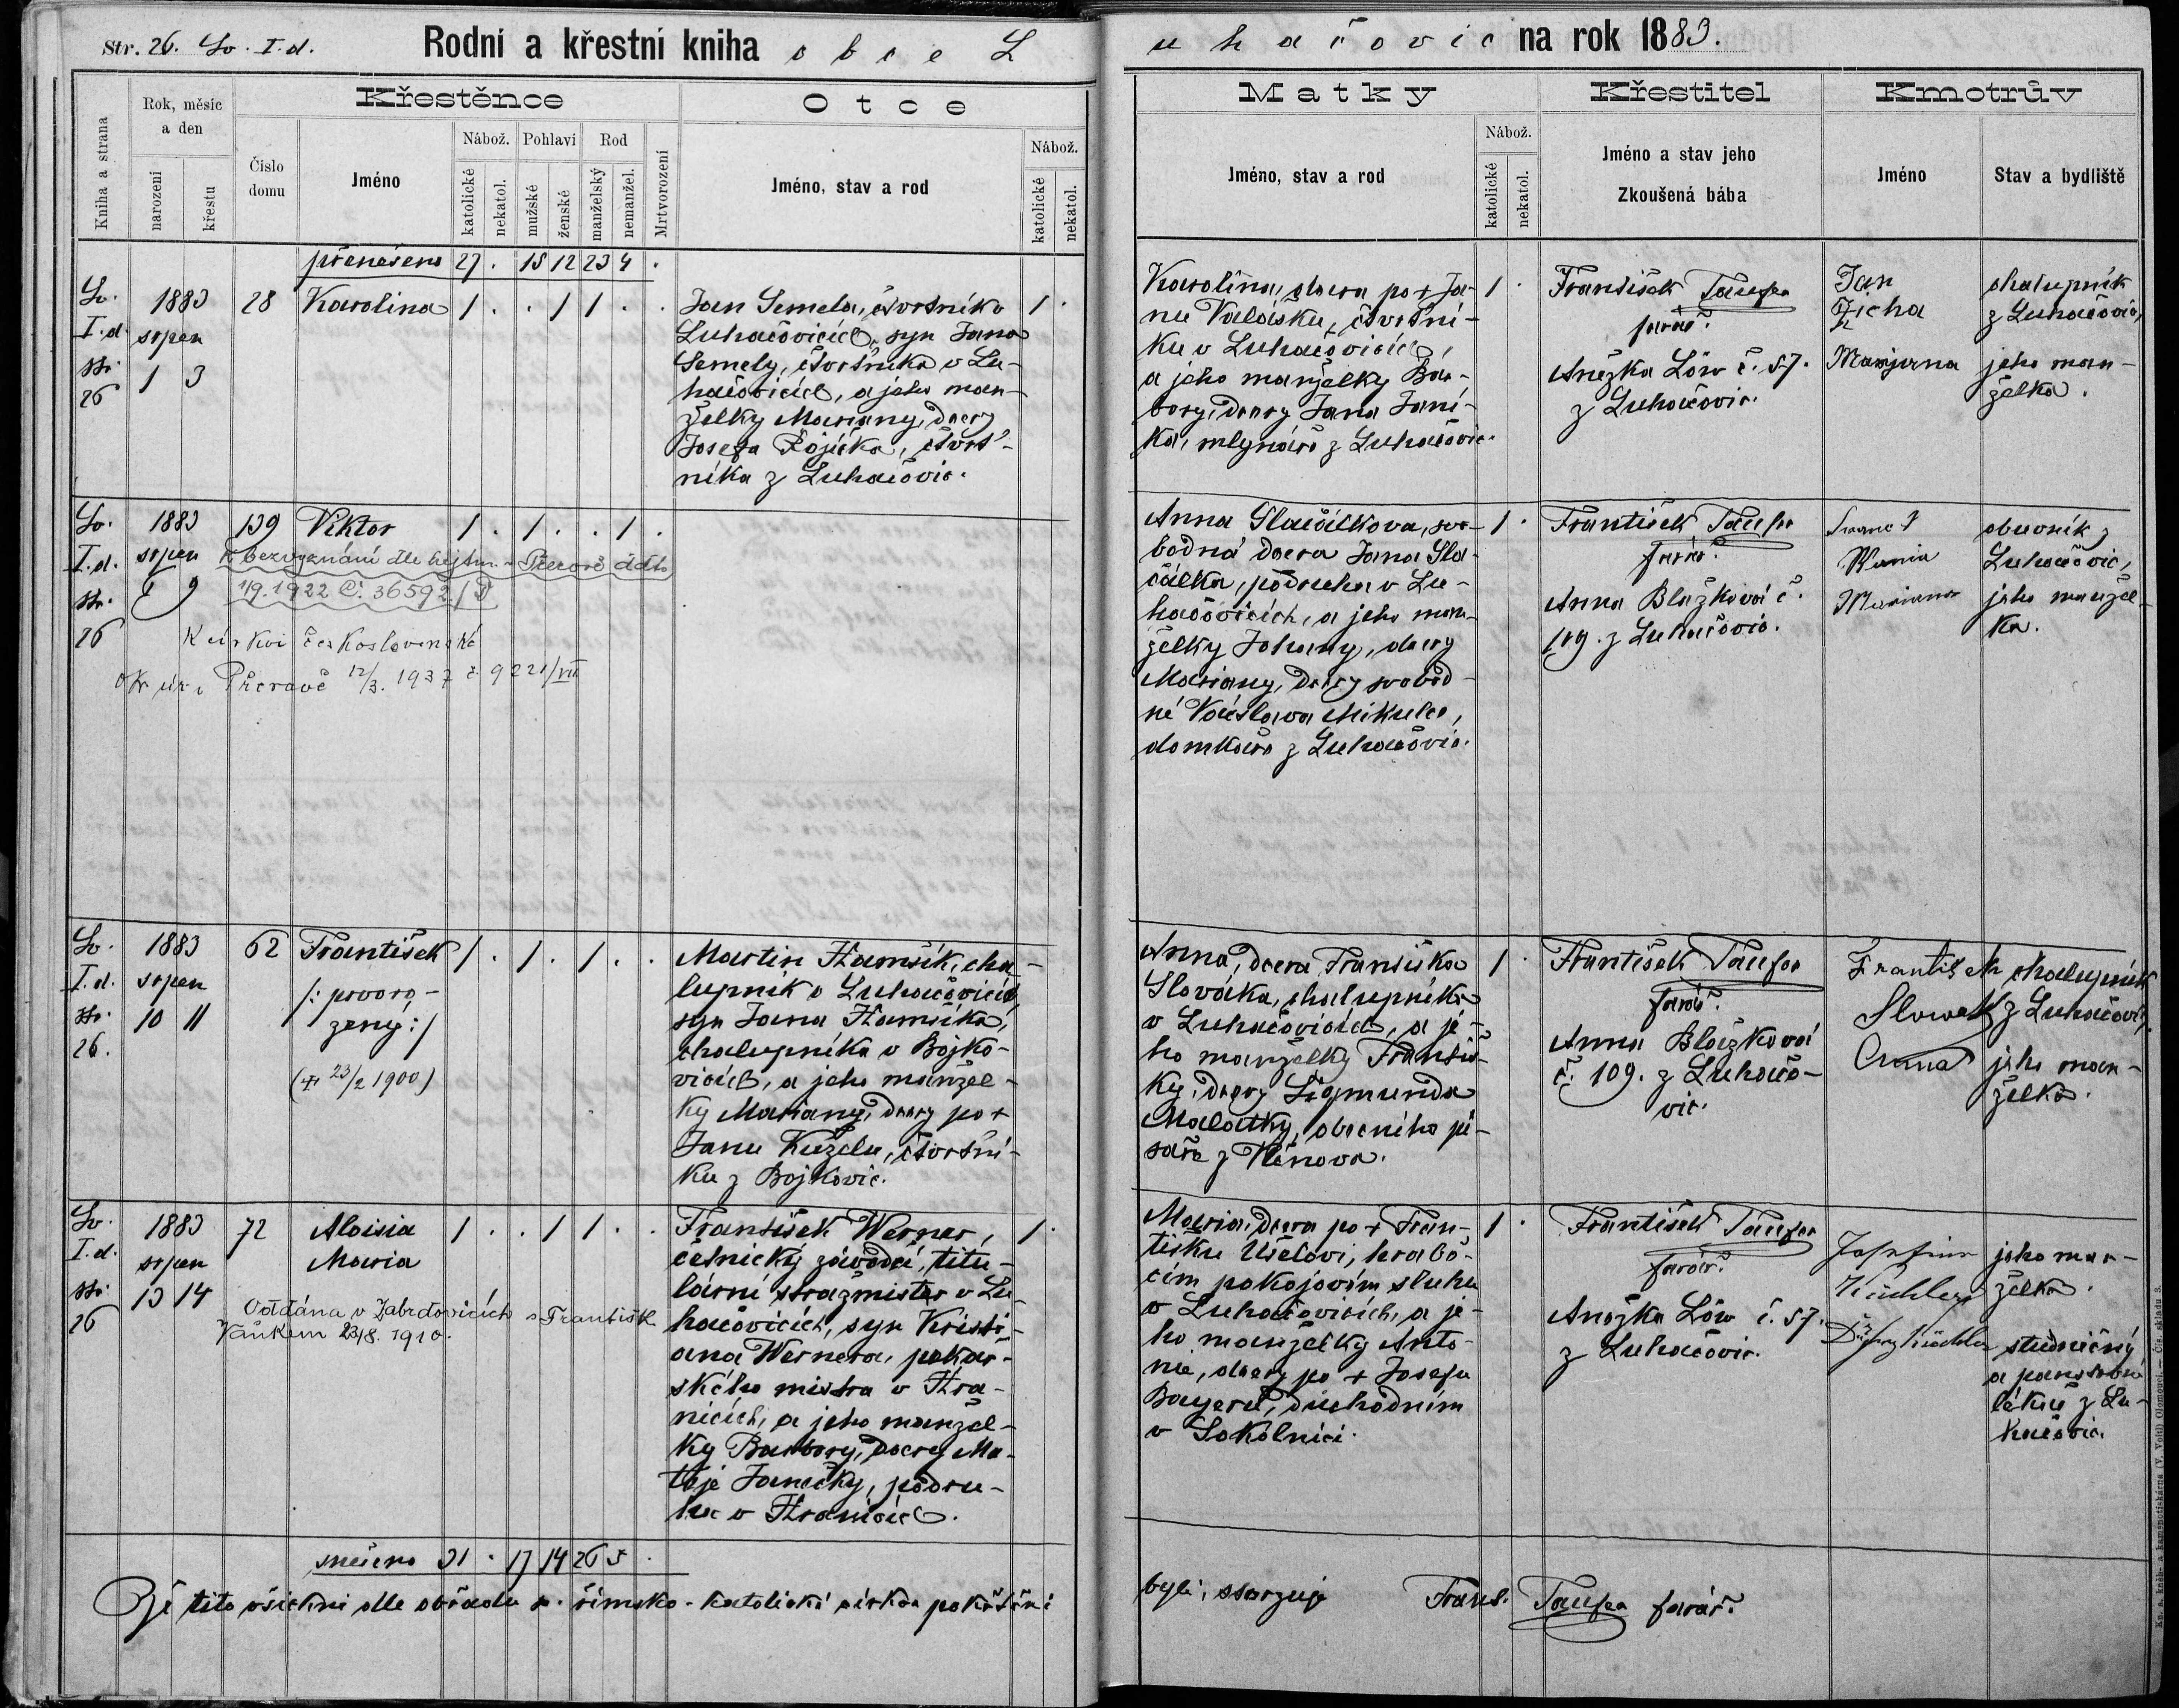 Str. 26. Sv. I. d.
Rodní a křestní kniha obce L
uhačovic na rok 1883.
Kniha a strana
Rok, měsíc a den
narození
křestu
Číslo domu
Křestěnce
Jméno
Nábož.
katolické
nekatol.
Pohlaví
mužské
ženské
Rod
manželský
nemanžel.
Mrtvorození
Otce
Jméno, stav a rod
Nábož.
katolické
nekatol.
Matky
Jméno, stav a rod
Nábož.
katolické
nekatol.
Křestitel
Jméno a stav jeho
Zkoušená bába
Kmotrův
Jméno
Stav a bydliště
přenešeno 27 . 15 12 23 4 .
Sv.
I. d.
str.
26
1883
srpen
1 3
28
Karolina
1 . . 1 1 . .
Jan Semela, čtvrtník v
Luhačovicích, syn Jana
Semely, čtvrtníka v Lu-
hačovicích, a jeho man-
želky Mariany, dcery
Josefa
čtvrt-
níka z Luhačovic.
1 .
Karolina, dcera po + Ja-
nu Valášku, čtvrtní-
ku v Luhačovicích,
a jeho manželky Bar-
bory, dcery Jana Janí-
ka, mlynáře z Luhačovic.
1 .
František Taufer
farář.
Anežka Löw č. 57.
z Luhačovic.
Jan
Zicha
Marijana
chalupník
z Luhačovic,
jeho man-
želka.
Sv.
I. d.
str.
26
1883
srpen
9
139
Viktor
1 . 1 . . 1 .
K bezvyznání dle hejtm. v Přerově ddto
1/9. 1922 č. 36592/
K církvi československé
Ok. úř. v Přerově 12/3. 1937 č. 9221/VII
Anna Slačálkova, svo-
bodná dcera Jana Sla-
čálka, podruha v Lu-
hačovicích, a jeho man-
želky Johany, dcery
Mariany, dcery svobod-
né Václava Mikulce,
domkáře z Luhačovic.
1 .
František Taufer
farář.
Anna Blažková č.
109. z Luhačovic.
Mariana
obuvník z
Luhačovic,
jeho manžel-
ka.
Sv.
I. d.
str.
26.
1883
srpen
10 11
62
František
/: prvoro-
zený :/
(+ 23/2 1900)
1 . 1 . 1 . .
Martin Hamšík, cha-
lupník v Luhačovicích,
syn Jana Hamšíka,
chalupníka v Bojko-
vicích, a jeho manžel-
ky Mariany, dcery po +
Janu Kuželu, čtvrtní-
ku z Bojkovic.
Anna, dcera Františka
Slováka, chalupníka
v Luhačovicích, a je-
ho manželky Františ-
ky, dcery Sigmunda
Malatky, obecního pí-
saře z
1 .
František Taufer
farář.
Anna Blažková
č. 109. z Luhačo-
vic.
František
Slowak
Anna
chalupník
z Luhačovic,
jeho man-
želka.
Sv.
I. d.
str.
26
1883
srpen
13 14
72
Aloisia
Maria
1 . . 1 1 . .
Oddána v Zabrdovicích s Františk.
Vaňkem 23/8. 1910.
František Werner,
četnický závodčí, titu-
lární strážmister v Lu-
hačovicích, syn Kristi-
ana Wernera, pekař-
ského mistra v Hra-
nicích, a jeho manžel-
ky Barbory, dcery Ma-
těje Janečky, podru-
ha v Hranicích.
1 .
Maria, dcera po + Fran-
tišku
hrabě-
cím pokojovím sluhu
v Luhačovicích, a je-
ho manželky Anto-
nie, dcery po + Josefu
Bayeru, důchodním
v Sokolnici.
1 .
František Taufer
farář.
Anežka Löw č. 57.
z Luhačovic.
Josefine
Küchler
Küchler
jeho man-
želka.
studničný
a panský
lékař z Lu-
hačovic.
sneseno 31 . 17 14 26 5 .
Že tito všickni dle obřadu sv. římsko-katolické církve pokřtěni
byli, stvrzuje Frant. Taufer farář.
Kn. a. kněh- a kamenotiskárna (V. Voitl) Olomouci. — Čís. skladu 3.